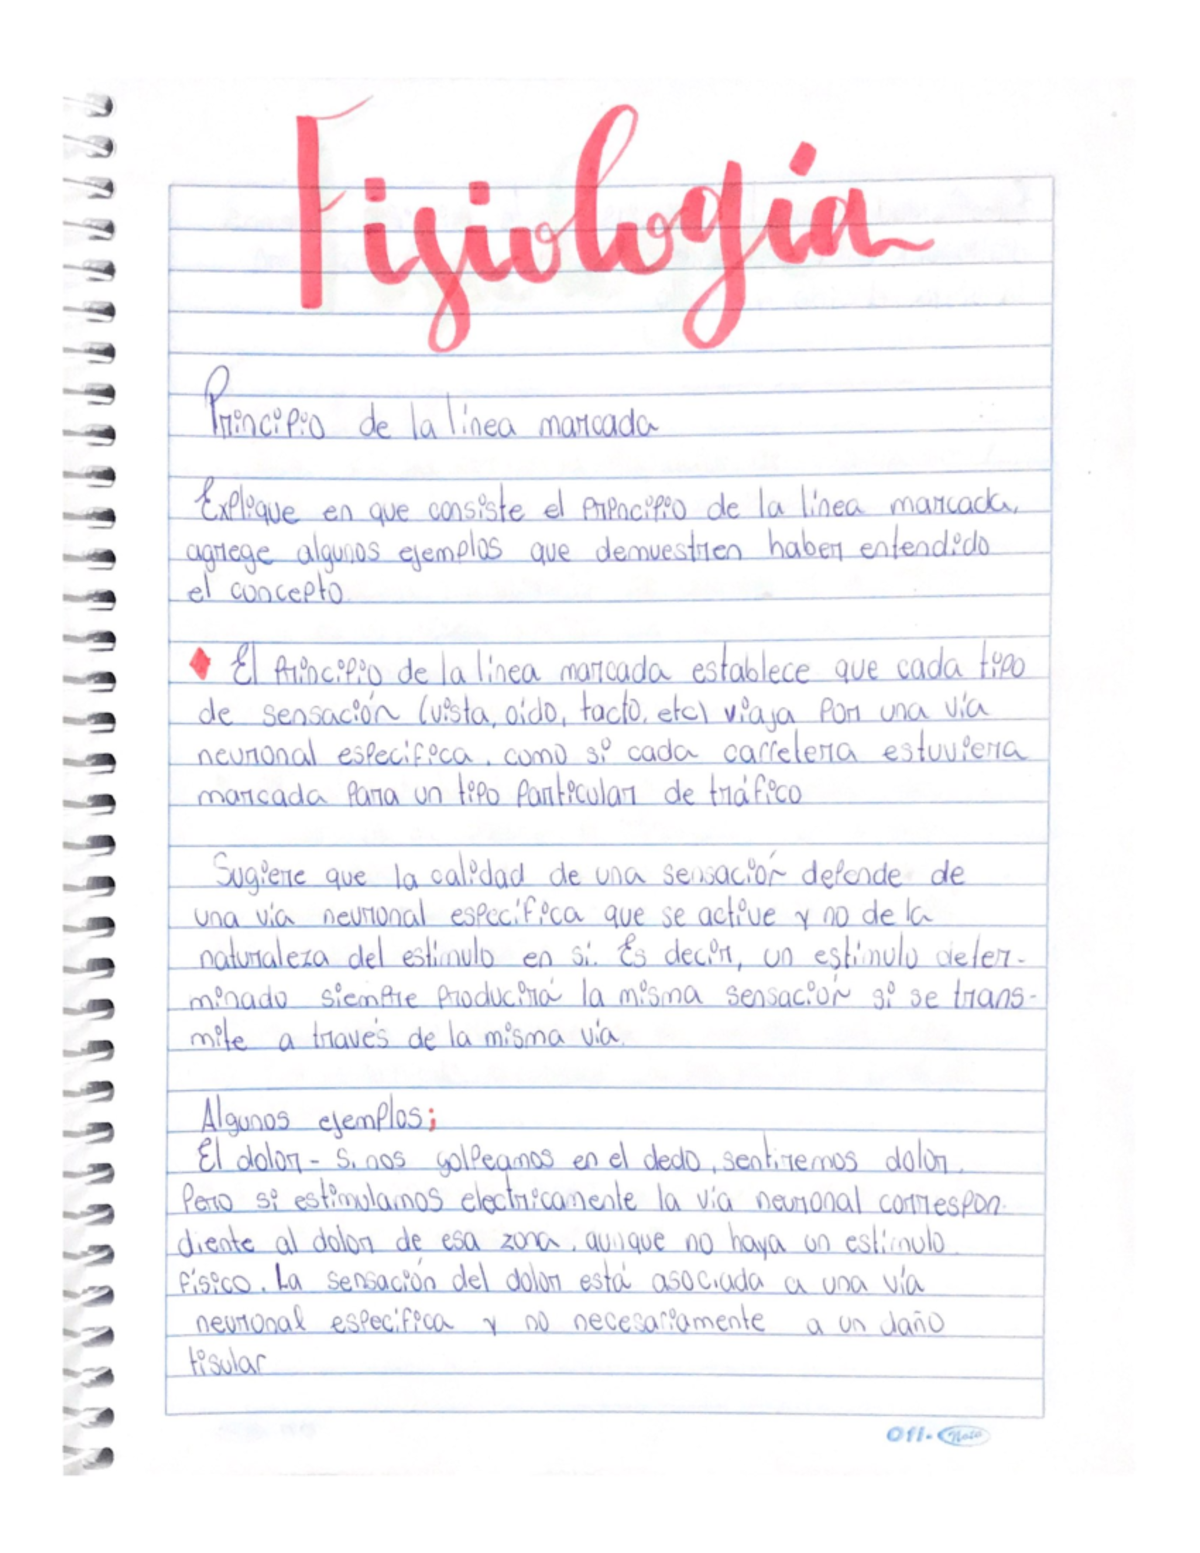 Fisiología
Principio de la línea marcada
Explique en que consiste el principio de la línea marcada,
agrege algunos ejemplos que demuestren haber entendido
el concepto.
El principio de la línea marcada establece que cada tipo
de sensación (vista, oído, tacto, etc) viaja por una vía
neuronal específica, como si cada carretera estuviera
marcada para un tipo particular de tráfico
Sugiere que la calidad de una sensación depende de
una vía neuronal específica que se active y no de la
naturaleza del estímulo en sí. Es decir, un estímulo deter-
minado siempre producirá la misma sensación si se trans-
mite a través de la misma vía.
Algunos ejemplos;
El dolor - Si nos golpeamos en el dedo, sentiremos dolor.
Pero si estimulamos electricamente la vía neuronal correspon-
diente al dolor de esa zona, aunque no haya un estímulo
físico. La sensación del dolor está asociada a una vía
neuronal específica y no necesariamente a un daño
tisular
Off-Nota